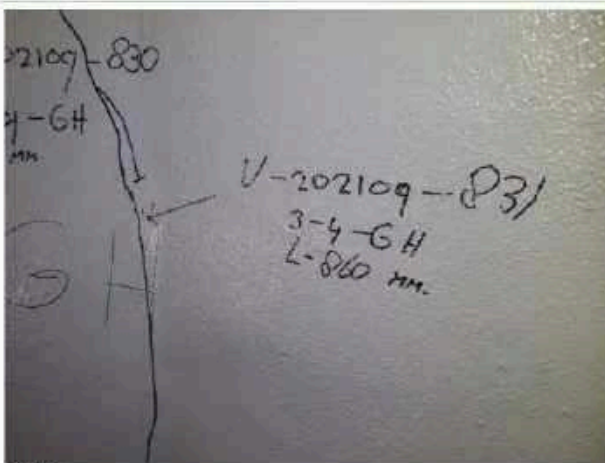 02109-830
4-GH
мм
V-202109-831
3-4-GH
L-860 мм.
GH